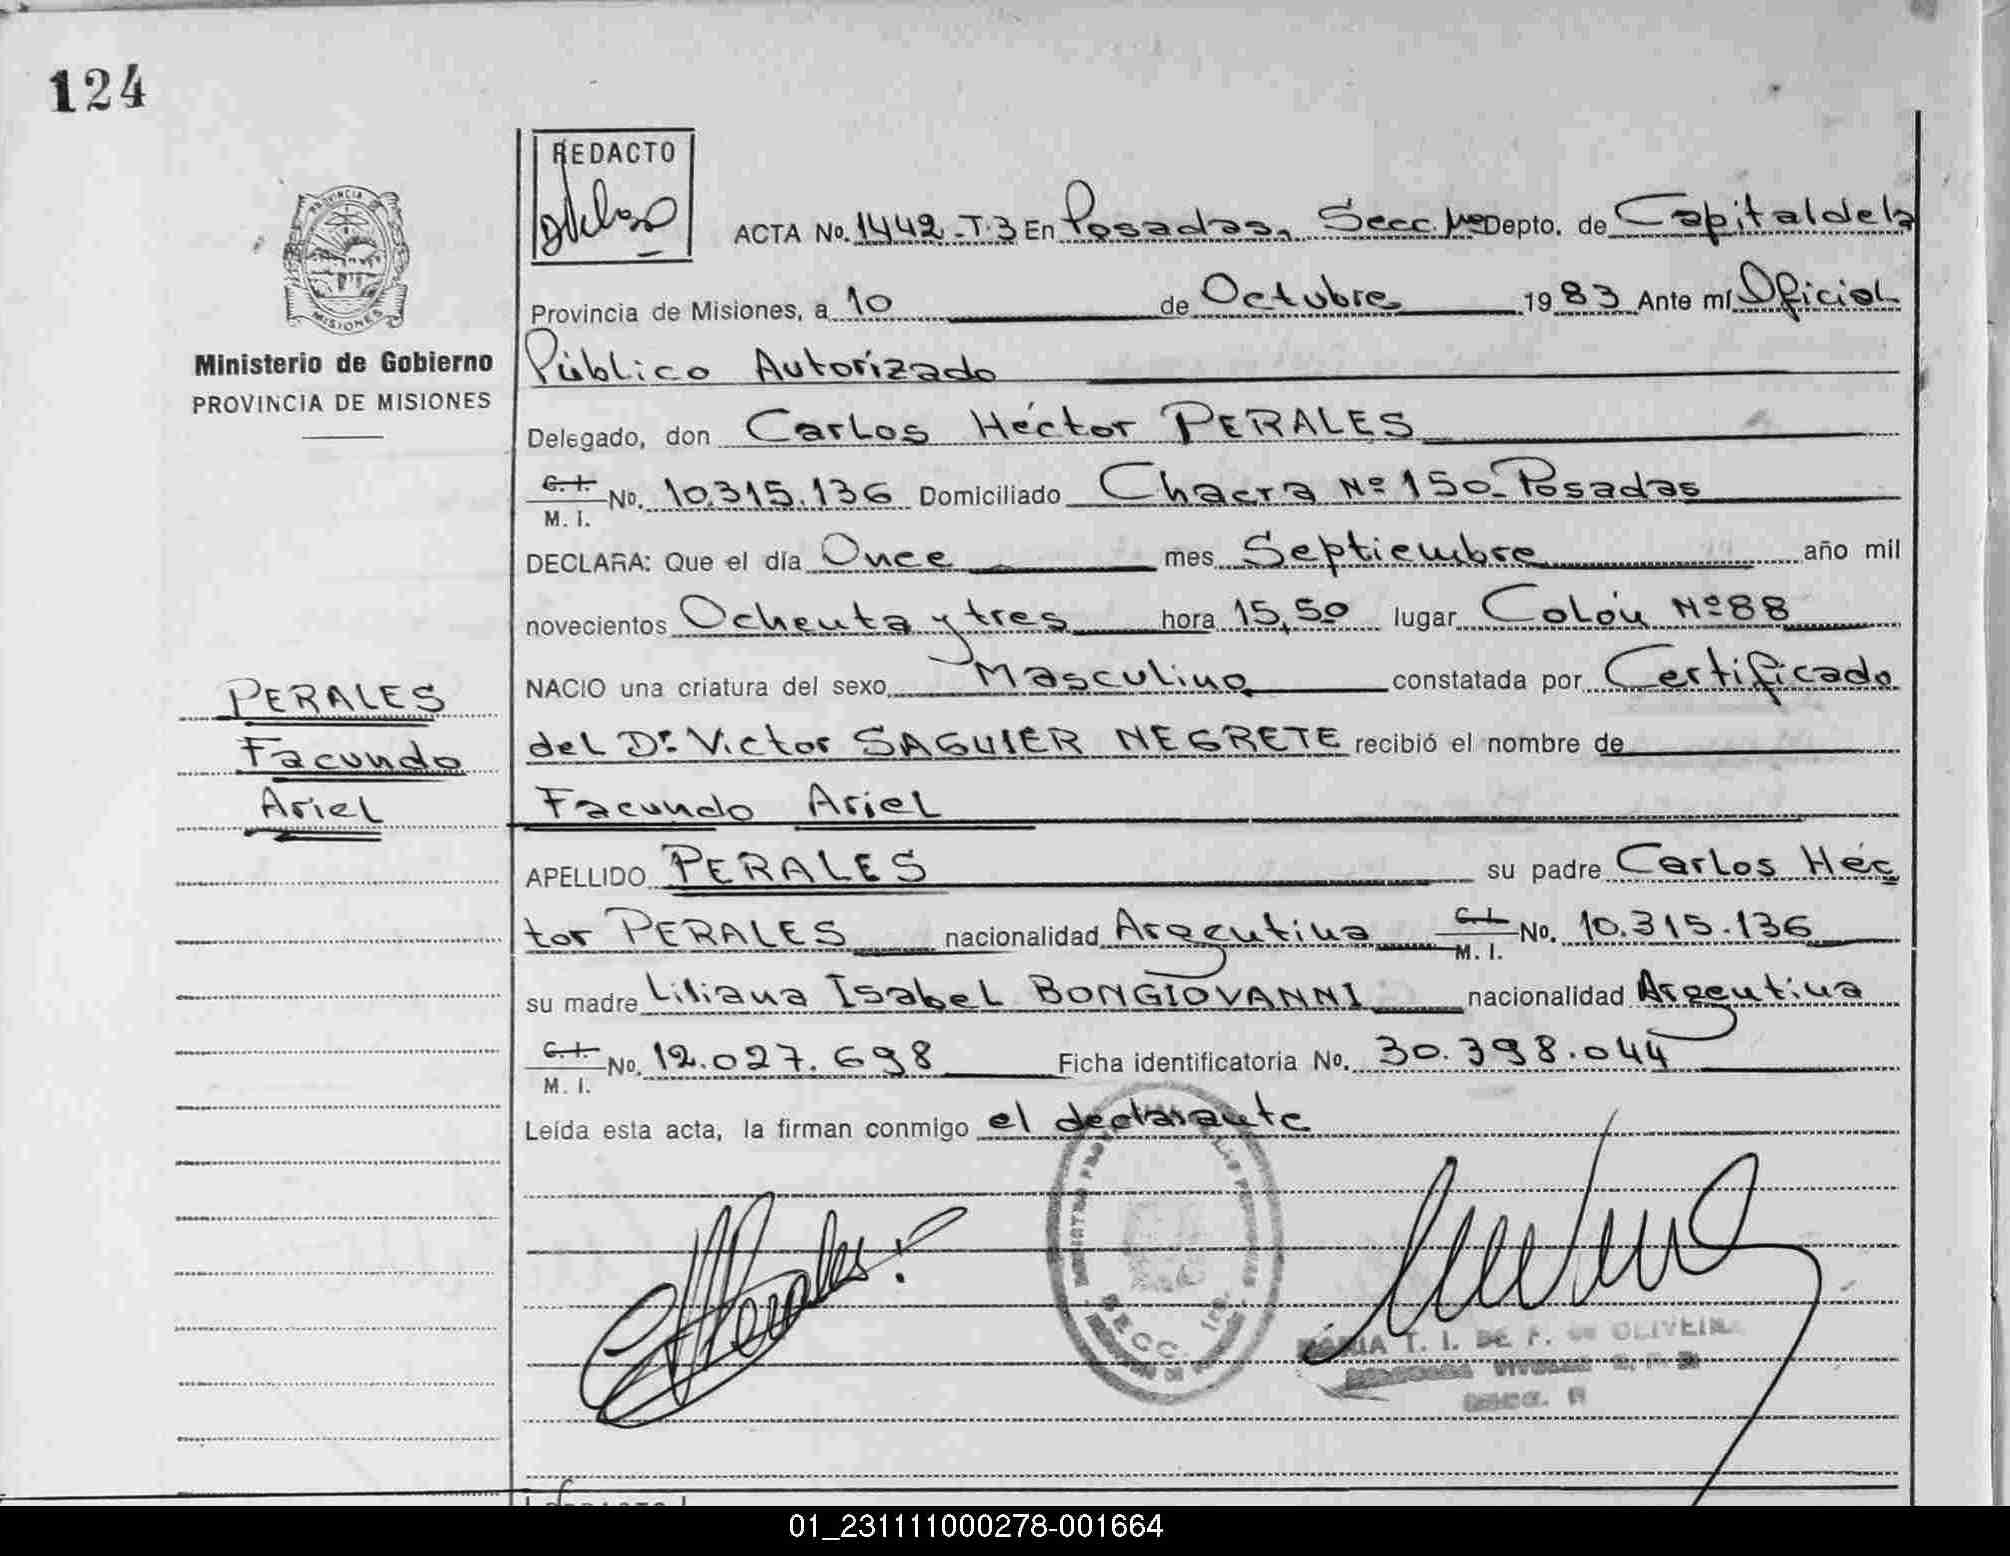 124
REDACTO
PROVINCIA DE
MISIONES
Ministerio de Gobierno
PROVINCIA DE MISIONES
ACTA No. 1442-T.3 En Posadas, Secc. 1ra Depto. de Capital de la
Provincia de Misiones, a 10 de Octubre 1983 Ante mí Oficial
Público Autorizado
Delegado, don Carlos Héctor PERALES
C. I. No. 10.315.136 Domiciliado Chacra Nº 150-Posadas
M. I.
DECLARA: Que el día Once mes Septiembre año mil
novecientos Ochenta y tres hora 15,50 lugar Colón Nº 88
NACIO una criatura del sexo Masculino constatada por Certificado
del Dr. Victor SAGUIER NEGRETE recibió el nombre de
Facundo Ariel
PERALES
Facundo
Ariel
APELLIDO PERALES su padre Carlos Héc
tor PERALES nacionalidad Argentina C. I. No. 10.315.136
M. I.
su madre Liliana Isabel BONGIOVANNI nacionalidad Argentina
C. I. No. 12.027.698 Ficha identificatoria No. 30.398.044
M. I.
Leída esta acta, la firman conmigo el declarante
Perales
SECC. 1ra.
MARIA T. I. DE F. de OLIVEIRA
REDACTO
01_231111000278-001664